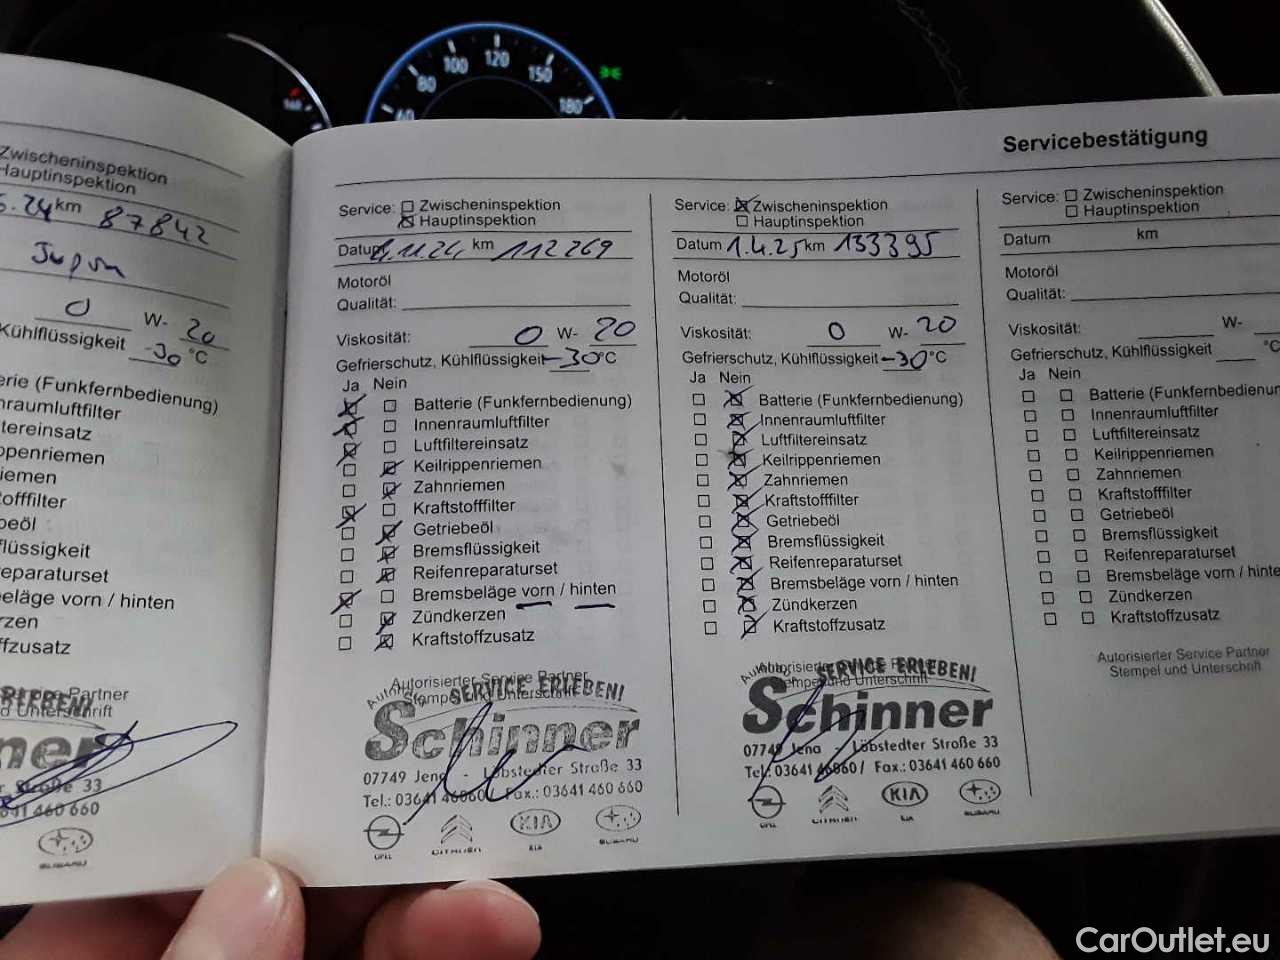 60 80 100 120 150 180
Servicebestätigung
Zwischeninspektion
Hauptinspektion
.24 km 87842
0 W- 20
Kühlflüssigkeit -30 °C
erie (Funkfernbedienung)
nraumluftfilter
tereinsatz
ppenriemen
iemen
offfilter
beöl
flüssigkeit
eparaturset
eläge vorn / hinten
rzen
ffzusatz
Partner
d Unterschrift
RLEBEN!
ner
Straße 33
460 660
SUBARU
Service: Zwischeninspektion
Hauptinspektion
Datum .11.24 km 112269
Motoröl
Qualität:
Viskosität: 0 W- 20
Gefrierschutz, Kühlflüssigkeit -30 °C
Ja Nein
Batterie (Funkfernbedienung)
Innenraumluftfilter
Luftfiltereinsatz
Keilrippenriemen
Zahnriemen
Kraftstofffilter
Getriebeöl
Bremsflüssigkeit
Reifenreparaturset
Bremsbeläge vorn / hinten
Zündkerzen
Kraftstoffzusatz
Autorisierter Service Partner
Stempel und Unterschrift
SERVICE ERLEBEN!
Schinner
07749 Jena - Löbstedter Straße 33
Tel.: 03641 46060 / Fax.: 03641 460 660
OPEL CITROËN KIA SUBARU
Service: Zwischeninspektion
Hauptinspektion
Datum 1.4.25 km 133395
Motoröl
Qualität:
Viskosität: 0 W- 20
Gefrierschutz, Kühlflüssigkeit -30 °C
Ja Nein
Batterie (Funkfernbedienung)
Innenraumluftfilter
Luftfiltereinsatz
Keilrippenriemen
Zahnriemen
Kraftstofffilter
Getriebeöl
Bremsflüssigkeit
Reifenreparaturset
Bremsbeläge vorn / hinten
Zündkerzen
Kraftstoffzusatz
Autorisierter Service Partner
Stempel und Unterschrift
SERVICE ERLEBEN!
Schinner
07749 Jena - Löbstedter Straße 33
Tel.: 03641 46060 / Fax.: 03641 460 660
OPEL CITROËN KIA SUBARU
Service: Zwischeninspektion
Hauptinspektion
Datum km
Motoröl
Qualität:
Viskosität: W-
Gefrierschutz, Kühlflüssigkeit °C
Ja Nein
Batterie (Funkfernbedienun
Innenraumluftfilter
Luftfiltereinsatz
Keilrippenriemen
Zahnriemen
Kraftstofffilter
Getriebeöl
Bremsflüssigkeit
Reifenreparaturset
Bremsbeläge vorn / hinte
Zündkerzen
Kraftstoffzusatz
Autorisierter Service Partner
Stempel und Unterschrift
CarOutlet.eu